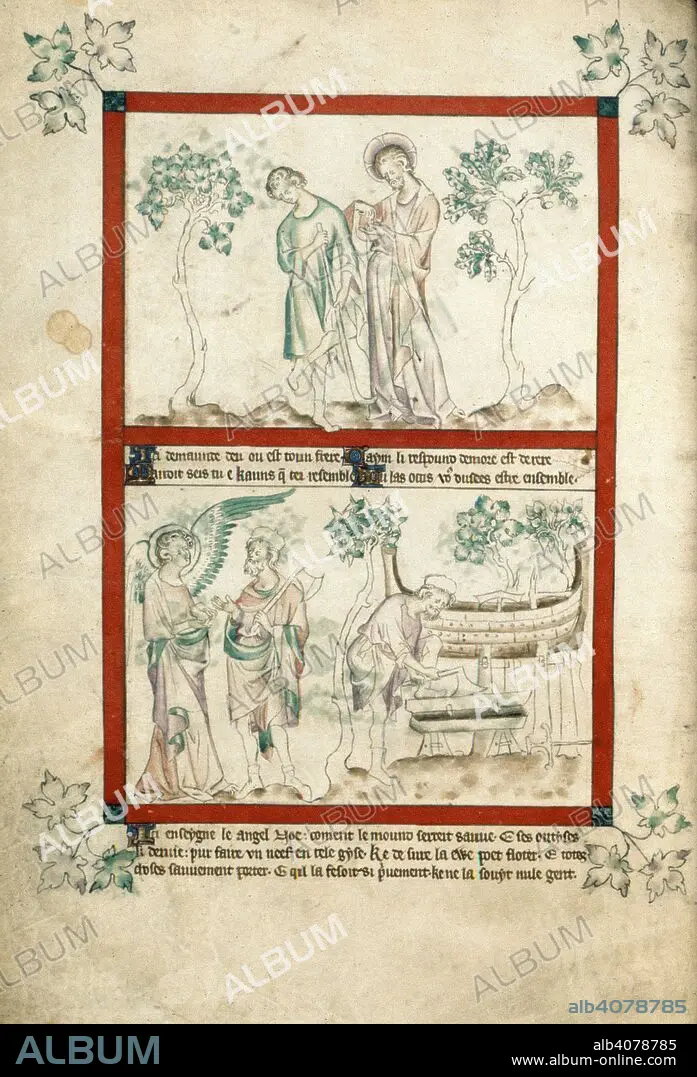 Ici demaunte deu ou est toun frere. Caym li respound demore est derere
Mauoit seis tu e kauns q ter resemble. Tu las octis vo dusees estre ensemble.
Ici enseygne le angel Noe: coment le mound serreit sauue. E ses outyses
li deuie: pur faire vn neef en tele gyse. Ke de sure la ewe poet floter. E totes
choses sauuement porter. E qil la fesoit si priuement. ke ne la souyt nule gent.
ALBUM
alb4078785
ALBUM
alb4078785
www.album-online.com